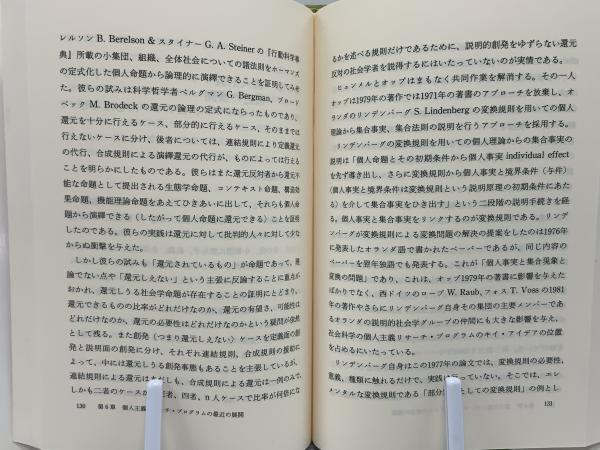 レルソン B. Berelson & スタイナー G. A. Steiner の『行動科学事
典』所載の小集団、組織、全体社会についての諸法則をホーマンズ
の定式化した個人命題から論理的に演繹できることを証明してみせ
た。彼らの試みは科学哲学者ベルグマン G. Bergman, ブロード
ベック M. Brodeck の還元の論理の定式にならったものであり、
還元を十分に行えるケース、部分的に行えるケース、そのままでは
行えないケースに分け、後者については、連結規則により定義還元
の代行、合成規則による演繹還元の代行が、ものによっては行える
ことを明らかにしたものである。彼らはまた還元反対者から還元不
能な命題として提出される生態学命題、コンテキスト命題、構造効
果命題、機能理論命題をあえてひきあいに出して、それらも個人命
題から演繹できる（したがって個人命題に還元できる）ことを証明
したのである。彼らの実践は還元に対して批判的人々に対して少な
からぬ衝撃を与えた。
しかし彼らの試みも「還元されているもの」が命題であって、理
論でない点や「還元しえない」という主張に反論することに重点が
おかれ、還元しうる社会学命題が存在することの証明にとどまり、
還元できるものの比率がどれだけなのか、還元の有望さ、可能性は
どれだけなのか、還元の必要性はどれだけなのかという疑問が依然
として残る。また創発（つまり還元しえない）ケースを定義面の創
発と説明面の創発に分け、それぞれ連結規則、合成規則の援助に
よって、中には還元しうる創発事態もあることを主張しているが、
連結規則による還元は しも、合成規則による還元は一例のみで、
しかも二者のケースが 者、四者、n 人ケースで比率が何倍にな
130 第6章 個人主義 チ・プログラムの最近の展開
るかを述べる規則だけであるために、説明的創発をゆずらない還元
反対の社会学者を説得するにはいたっていないのが実情である。
ヒュメルとオップはまもなく共同作業を解消する。その一人
オップは1979年の著作では1971年の著書のアプローチを放棄し、オ
ランダのリンデンバーグ S. Lindenberg の変換規則を用いての個人
理論から集合事実、集合法則の説明を行うアプローチを採用する。
リンデンバーグの変換規則を用いての個人理論からの集合事実の
説明は「個人命題とその初期条件から個人事実 individual effect
を先ず導き出し、さらに変換規則から個人事実と境界条件（与件）
（個人事実と境界条件は変換規則という説明原理の初期条件にあた
る）を介して集合事実をひき出す」という二段階の説明手続を経
る。個人事実と集合事実をリンクするのが変換規則である。リンデ
ンバーグが変換規則による変換問題の解決の提案をしたのは1976年
に発表したオランダ語で書かれたペーパーであるが、同じ内容の
ペーパーを翌年独語でも発表する。これが「個人事実と集合現象と
変換の問題」であり、これは、オップ1979年の著書に影響を与えた
ばかりでなく、西ドイツのローブ W. Raub、フォス T. Voss の1981
年の著作やさらにリンデンバーグ自身その集団の主要メンバーであ
るオランダの説明的社会学グループの仲間にも大きな影響を与え、
社会科学の個人主義リサーチ・プログラムのキイ・アイデアの位置
を占めるにいたっている。
リンデンバーグ自身はこの1977年の論文では、変換規則の必要性、
意義、種類に触れるだけで、実践は っていない。そこでは、エレ
メンタルな変換規則である「部分 としての変換規則」の例とし
131